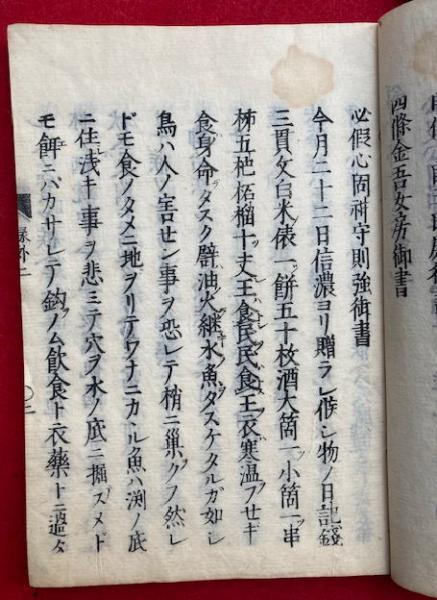 四條金吾女房御書
必假心固神守則強御書
今月二十二日信濃ヨリ贈ラレ候シ物ノ日記錢
三貫文白米俵一餅五十枚酒大筒一小筒一串
柿五杷柘榴十丈王食民民食王衣寒温フセギ
食身命タスク譬油火継水魚タスケタルガ如シ
鳥ハ人ノ害セン事ヲ恐レテ梢ニ巢クフ然レ
ドモ食ノタメニ地ヲリテワナニカヽル魚ハ渕ノ底
ニ住浅キ事ヲ悲ミテ穴ヲ水ノ底ニ掘スメド
モ餌ニバカサレテ鈎ノム飲食ト衣藥トニ過タ